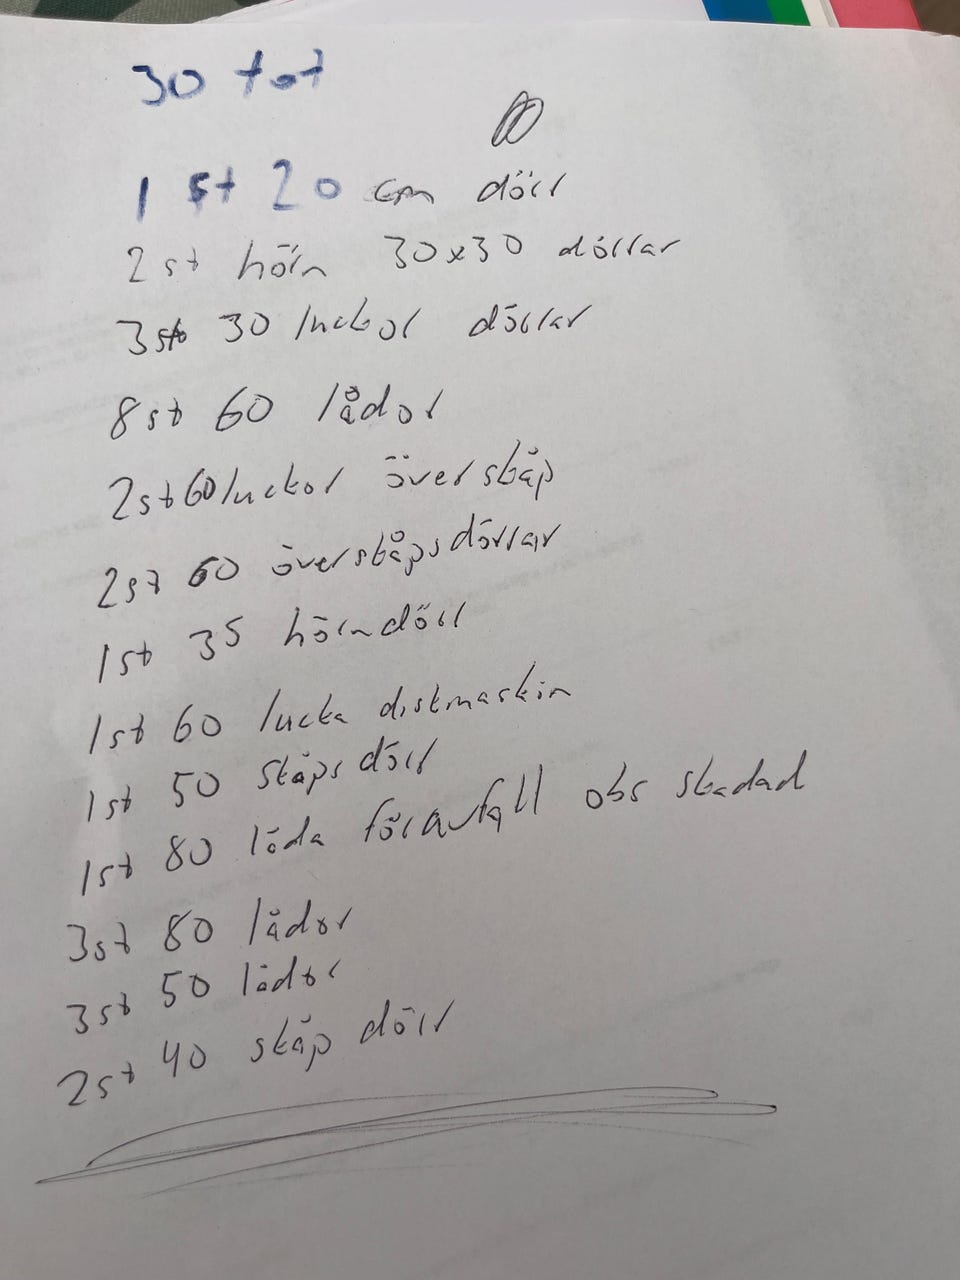 30 tot
1 st 20 cm dörr
2 st hörn 30x30 dörrar
3 st 30 luckor dörrar
8 st 60 lådor
2 st 60 luckor överskåp
2 st 60 överskåpsdörrar
1 st 35 hörndörr
1 st 60 lucka diskmaskin
1 st 50 skåpsdörr
1 st 80 låda för avfall obs skadad
3 st 80 lådor
3 st 50 lådor
2 st 40 skåp dörr